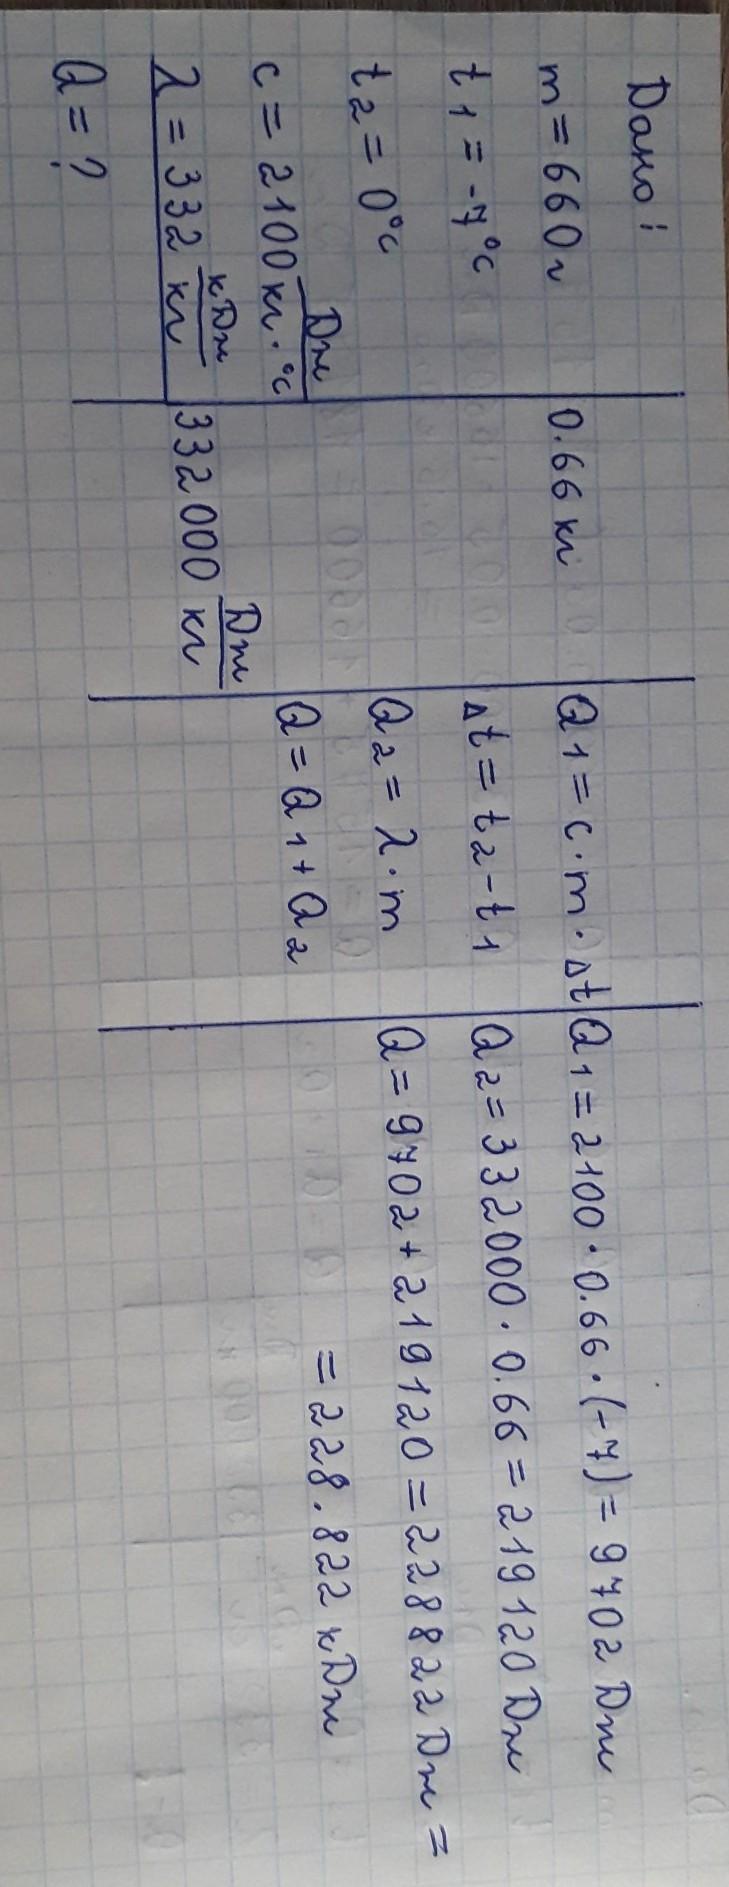 Дано:
m = 660 г
t1 = -7°C
t2 = 0°C
c = 2100 Дж/кг·°C
λ = 332 кДж/кг
Q = ?
0.66 кг
332 000 Дж/кг
Q1 = c·m·Δt
Δt = t2 - t1
Q2 = λ·m
Q = Q1 + Q2
Q1 = 2100·0.66·(-7) = 9702 Дж
Q2 = 332 000·0.66 = 219120 Дж
Q = 9702 + 219120 = 228822 Дж =
= 228.822 кДж